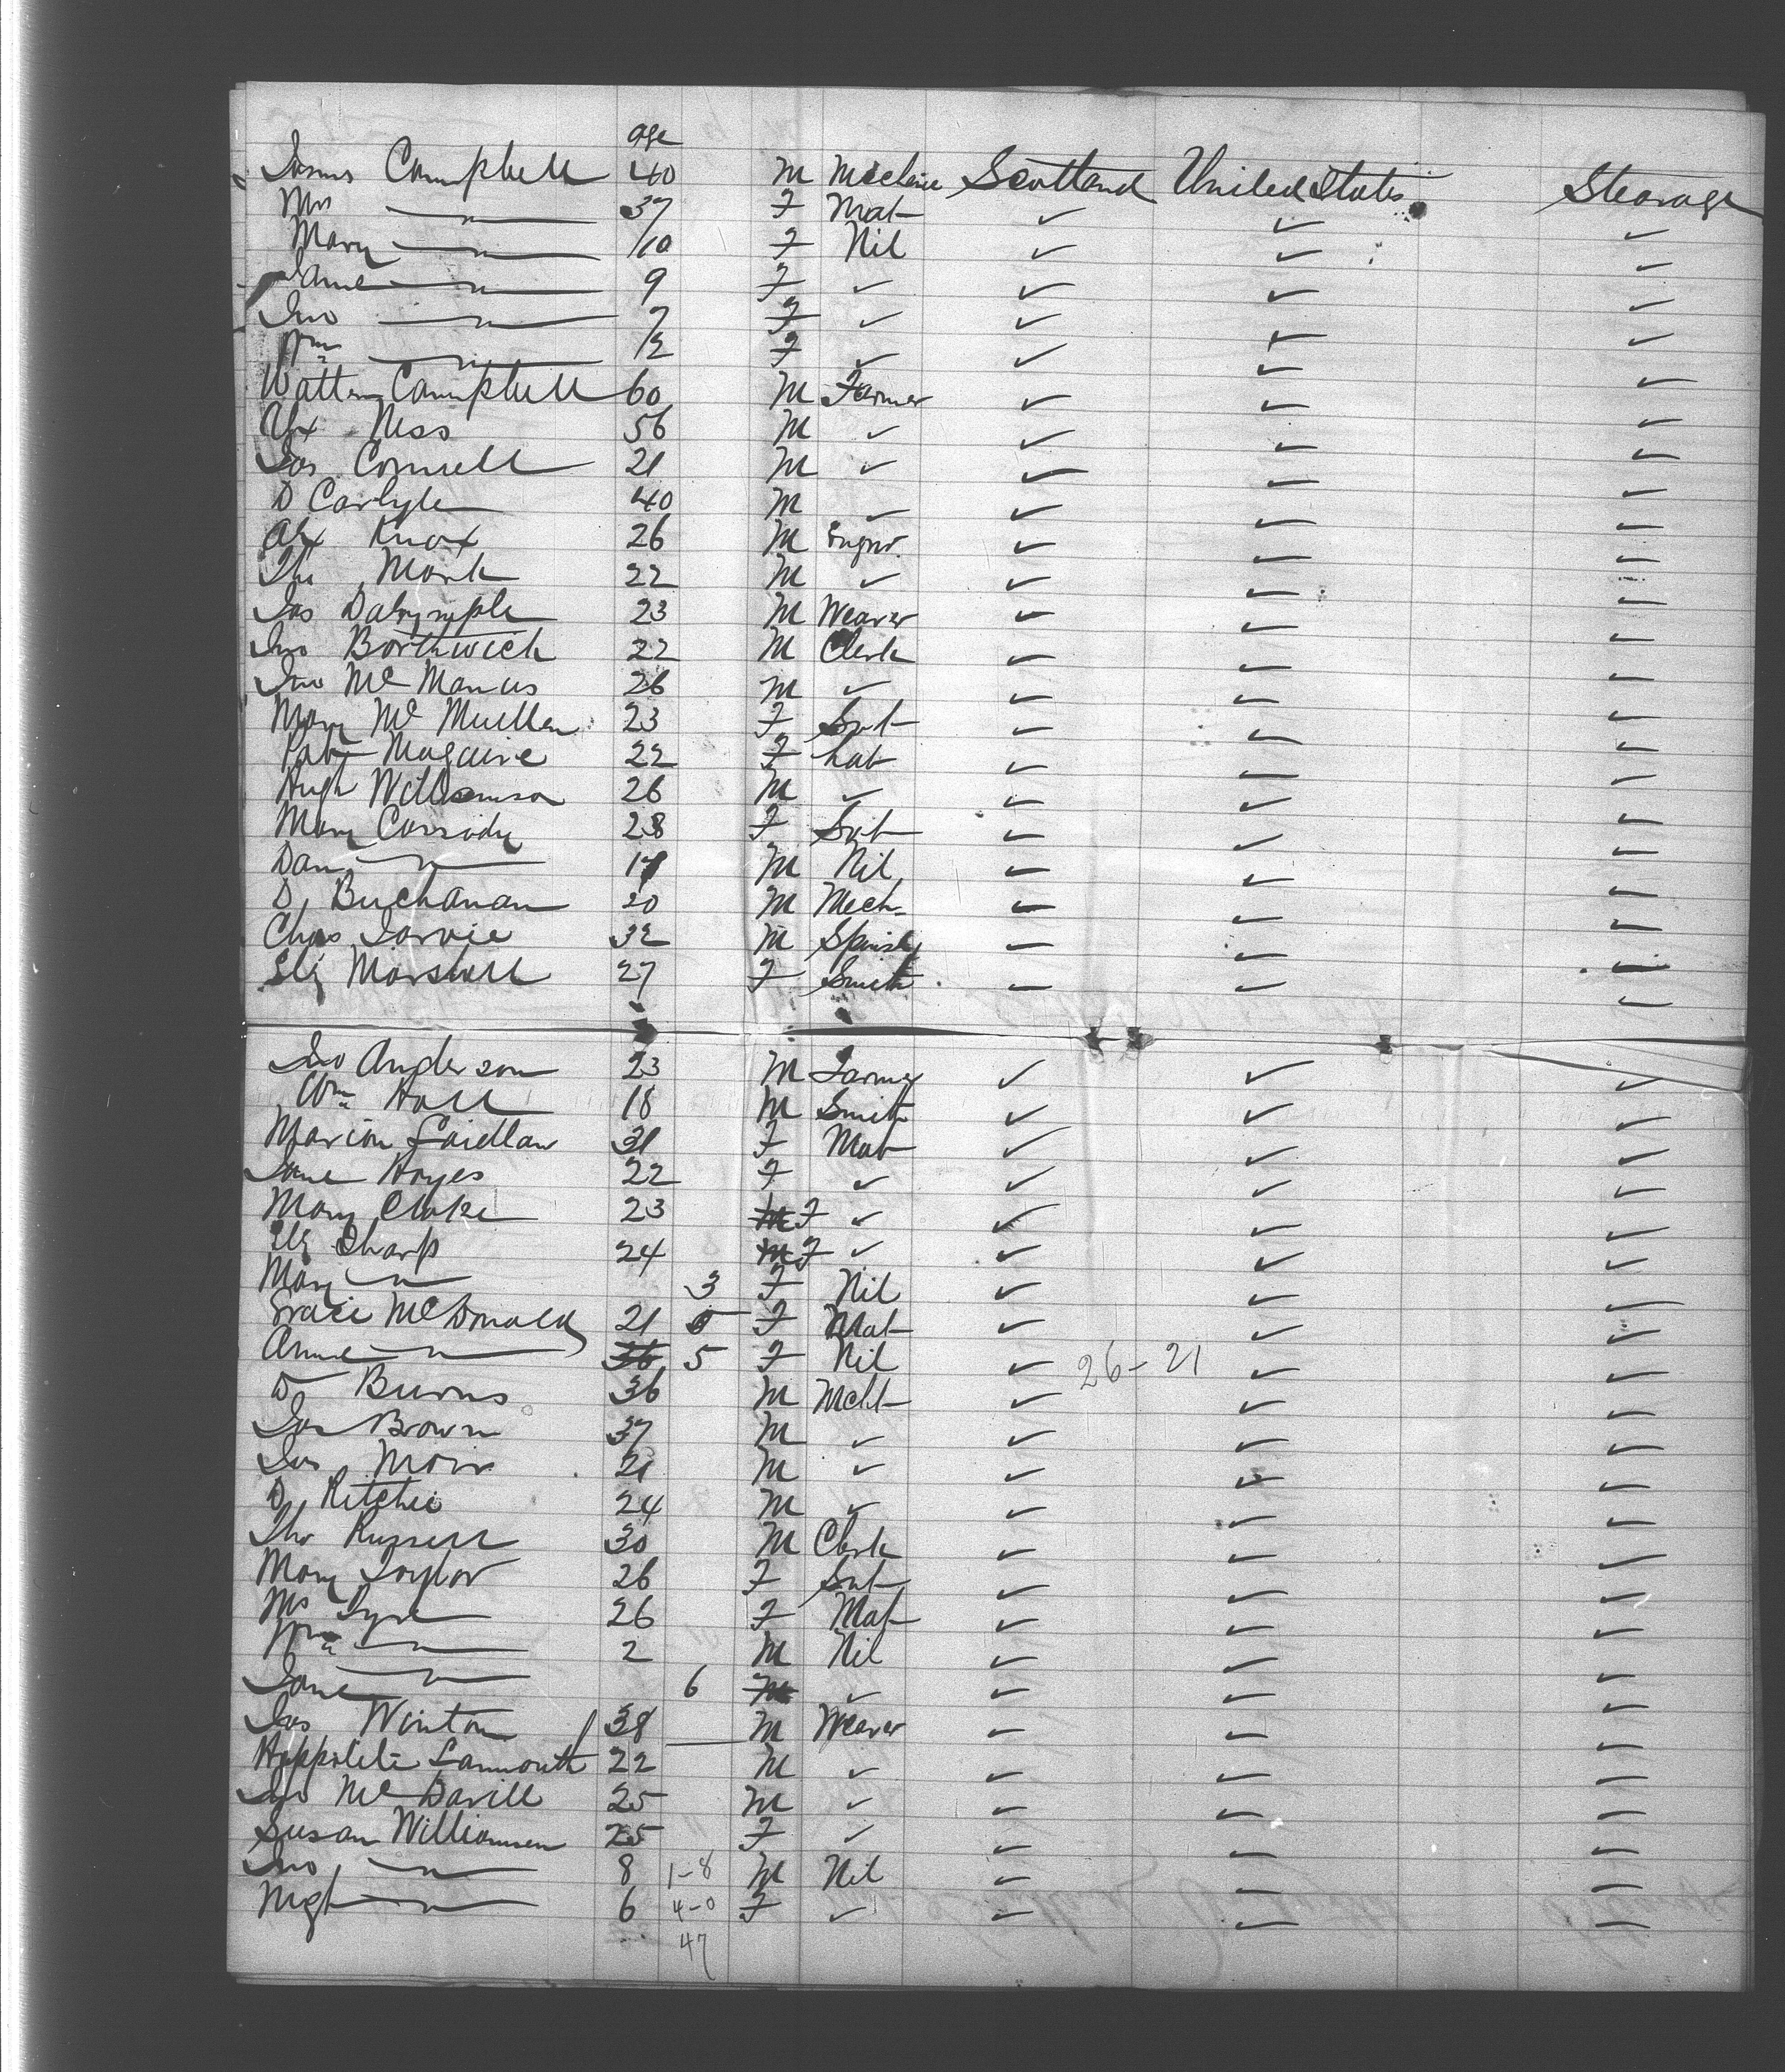 age
James Campbell 40 M Mechanic Scotland United States Steerage
Mrs —〃— 37 F Mat ✓ ✓ ✓
Mary —〃— 10 F Nil ✓ ✓ ✓
Jane —〃— 9 F ✓ ✓ ✓ ✓
Jno —〃— 7 F ✓ ✓ ✓ ✓
Wm —〃— F ✓ ✓ ✓ ✓
Campbell 60 M Farmer ✓ ✓ ✓
Alx Ness 56 M ✓ ✓ ✓ ✓
Jas Connell 21 M ✓ ✓ ✓ ✓
D Carlyle 40 M ✓ ✓ ✓ ✓
Alx Knox 26 M Engnr. ✓ ✓ ✓
Tho Monk 22 M ✓ ✓ ✓ ✓
Jas Dalrymple 23 M Weaver ✓ ✓ ✓
Jno Borthwick 22 M Clerk ✓ ✓ ✓
Jno McManus 26 M ✓ ✓ ✓ ✓
Mary McMullen 23 F Svt ✓ ✓ ✓
Pat Maguire 22 F Lab ✓ ✓ ✓
Hugh Williamson 26 M ✓ ✓ ✓ ✓
Mary Cassidy 28 F Svt ✓ ✓ ✓
Dan —〃— M Nil ✓ ✓ ✓
D, Buchanan 20 M Mech. ✓ ✓ ✓
Chas Jarvie 32 M ✓ ✓ ✓
Eliz Marshall 27 F Smith ✓ ✓ ✓
Jno Anderson 23 M Farmer ✓ ✓ ✓
Wm Hall 18 M Smith ✓ ✓ ✓
Marion Laidlaw 31 F Mat ✓ ✓ ✓
Jane Hayes 22 F ✓ ✓ ✓ ✓
Mary Clake 23 M F ✓ ✓ ✓ ✓
Eliz Sharp 24 M F ✓ ✓ ✓ ✓
Mary —〃— 3 F Nil ✓ ✓ ✓
Grace McDonald 21 5 F Mat ✓ ✓ ✓
Anne —〃— 36 5 F Nil ✓ 26-21 ✓ ✓
D, Burns 36 M Mcht ✓ ✓ ✓
Jas Brown 37 M ✓ ✓ ✓ ✓
Jas Moir 21 M ✓ ✓ ✓ ✓
D, Ritchie 24 M ✓ ✓ ✓ ✓
Tho Russell 30 M Clerk ✓ ✓ ✓
Mary Taylor 26 F Svt ✓ ✓ ✓
Mrs Tyre 26 F Mat ✓ ✓ ✓
Wm —〃— 2 M Nil ✓ ✓ ✓
Jane —〃— 6 ✓ ✓ ✓ ✓
Jas Winton 38 M Weaver ✓ ✓ ✓
Hyppolite Lamouth 22 M ✓ ✓ ✓ ✓
Jno McDavill 25 M ✓ ✓ ✓ ✓
Susan Williamson 25 F ✓ ✓ ✓ ✓
Jno, —〃— 8 1-8 M Nil ✓ ✓ ✓
Mgt —〃— 6 4-0 F ✓ ✓ ✓ ✓
47